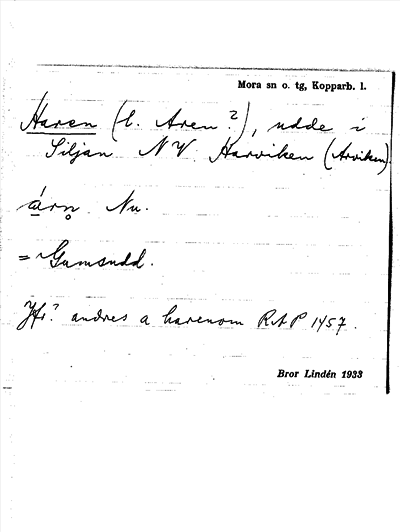 Mora sn o. tg, Kopparb. l.
Haren (l. Aren?), udde i
Siljan NV Harviken (Arviken)
árn̥ Nu.
= Gumsudd.
Jfr? andres a harenom RAP 1457.
Bror Lindén 1933